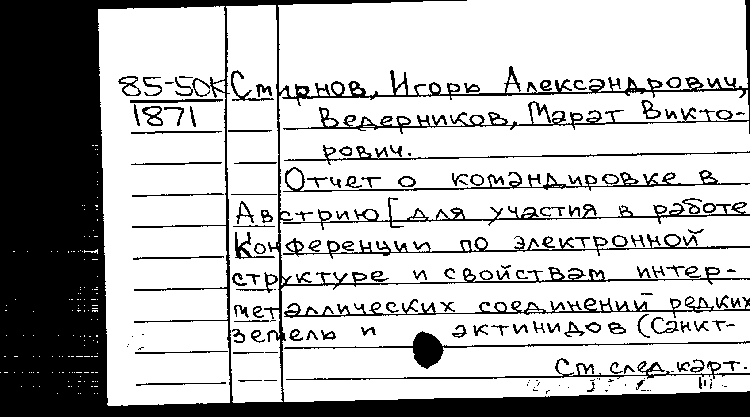 85-50К Смирнов, Игорь Александрович,
1871 Ведерников, Марат Викто-
рович.
Отчет о командировке в
Австрию [для участия в работе
Конференции по электронной
структуре и свойствам интер-
металлических соединений редких
земель и актинидов (Санкт-
См. след. карт.